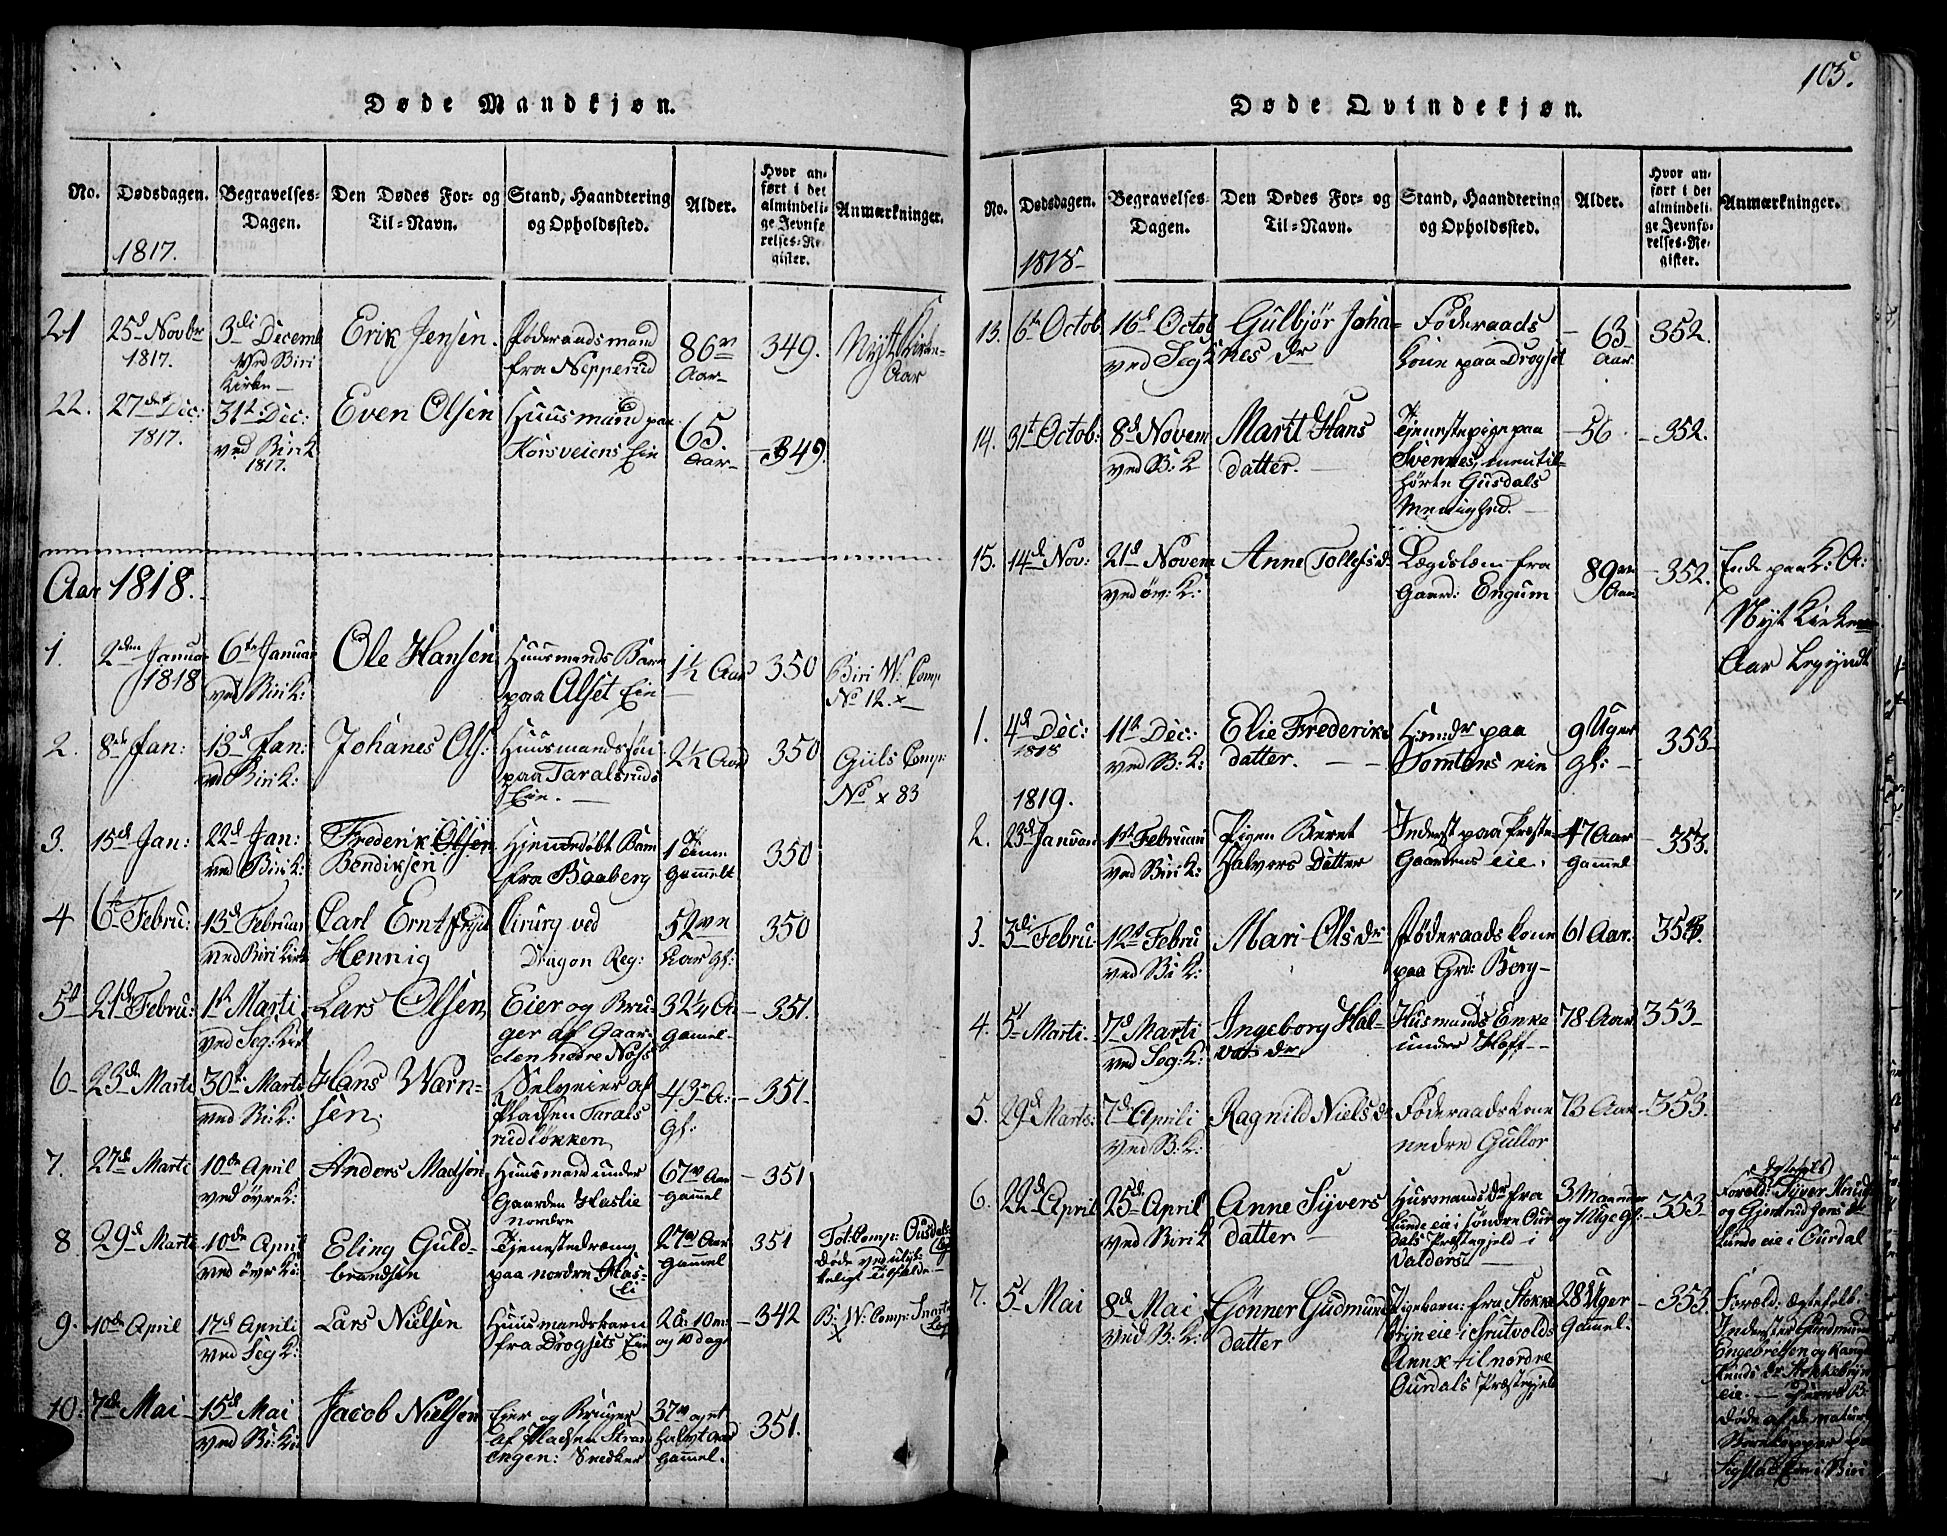 Døde Mandkjøn.
No.
Dødsdagen.
1817.
Begravelses-
Dagen.
Den Dødes For- og
Til-Navn.
Stand, Haandtering
og Opholdssted.
Alder.
Hvor an-
ført i det
almindeli-
ge Jevnfø-
relses-Re-
gister.
Anmærkninger.
21
25d Novbr
1817.
3di Decemb
Ved Biri
Kirke
Erik Jensen.
Føderaadsmand
fra Nepperud
86
Aar
349.
Nyt Kirke-
Aar
22.
27de Dec:
1817.
31t Dec:
ved Biri K
1817.
Even Olsen
Huusmand paa
Korsveiens Eie
65
Aar
349.
Aar 1818.
1.
2den Janua
1818
6te Januar
ved Biri K:
Ole Hansen
Huusmands Barn
paa Alset Eie
1½ Aar
350
Biri W: Comp
No 12. x
2.
8de Jan:
13d Jan:
ved Biri K:
Johanes Ols:
Huusmandssøn
paa Taralsruds
Eie.
2½ Aar
350
Guls Comp:
No x 83
3.
15d Jan:
22d Jan:
ved Biri K:
Frederik Olsen
Bendiksen
Hjemmedøbt Barn
fra Baaberg
1 Time
Gammelt
350
4
6t Febru:
13d Februar
ved Biri Kirk
Carl Ernt
Hennig
Cirurg ved
Dragon Reg:
52
Aar gl:
350
5
21de Febru:
1st Marti
ved Seg: Kirk
Lars Olsen
Eier og Bru-
ger af Gaar-
den nedre Næss
32½ A
Gamel
351.
6
23d Marti
30t Marti
ved Bi: K:
Hans Warn-
sen.
Selveier af
Pladsen Tarals
rudløkken
43 A:
Gl:
351.
7.
27d Marti
10de April
Ved øvre K:
Anders Madsøn
Huusmand under
Gaarden Haslie
nordre
67 Aar
Gammel
351
8
29d Marti
10de April
Ved øvre Ki:
Eling Guld-
brandsen
Tjenestedreng
paa nordre Has-
li
27 Aar
Gammel
351
Tot: Comp:
Døde ved ulyk-
keligt Tilfælde
9.
10de April
17de Aprili
ved Seg K:
Lars Nielsen
Huusmandsbarn
fra Drogsets Eie
2 A: 10 m:
og 10 dage
342
B: W: Comp:
10.
7de Mai
15de Mai
Ved Bi: Ki
Jacob Nielsen
Eier og Bruger
af Pladsen Strand
engen: Snedker
37 og et
halvt Aar
Gammel.
351.
105.
Døde Qvindekjøn.
No.
Dødsdagen.
1818
Begravelses-
Dagen.
Den Dødes For- og
Til-Navn.
Stand, Haandtering
og Opholdssted.
Alder.
Hvor an-
ført i det
almindeli-
ge Jevnfø-
relses-Re-
gister.
Anmærkninger.
13.
6t Octob
16d Octob
ved Seg: K
Gulbjør Joha-
nes dr
Føderaads
kone paa Drogset
63
Aar
352.
14.
31t Octob:
8d Novem
ved B: K
Marit Hans
datter.
Tjenestepige paa
Svennes, men til-
hørte Gusdals
Menighed.
56
352.
15.
14d Nov:
21d Novem
ved øv: K:
Anne Tollefs d:
Lægdslem fra
Gaard: Engum
89
Aar
352.
Ende paa K: A:
Nyt Kirke-
Aar begyndt
1.
4d Dec:
1818
11t Dec:
ved B: K:
Elie Frederiks
datter.
Hsm: dr paa
Tomtens eie
9 Uger
Gl:
353
1819.
2.
23d Januari
1st Februar
ved Biri K:
Pigen Beret
Halvors Datter
Inderst paa Præste-
Gaardens eie.
47 Aar
Gammel
353.
3.
3di Febru:
12t Febru
ved Bi K:
Mari Ols dr
Føderaads kone
paa Grd: Berg
61 Aar.
353.
4.
5t Marti.
7d Marti
ved Seg: K:
Ingeborg Hal-
vors dr
Husmands Enke
under Hoff
78 Aar
353
5.
29d Marts:
7d Aprili
ved B: K:
Ragnild Niels d:
Føderaadskone
nedre Gullor
73 Aar
353.
6.
22d April
25d April
ved Biri K
Anne Syvers
datter
Husmands dr fra
Lunde eie i søndre Our
dals Præstegjeld i
Valders
3 Maaneder
og 1 Uge gl:
353
Ægtefolk
Foreld: Syver Knud
og Gjertrud Jens dr
Lunde eie i Ourdal
7.
5t Mai
8d Mai
ved B: K:
Gønner Gudmunds
datter
Pigebarn: fra Stokke
eie i
Annex til nordre
Ourdals Præstegjeld
28 Uger
Gammel.
353.
Foreld: Ægtefolk:
Inderster Gudmund
Engebretsen og
Knuds dr Stokkebryn
eie. Deres B.
Døde af de naturl
Børnekopper paa
i Biri